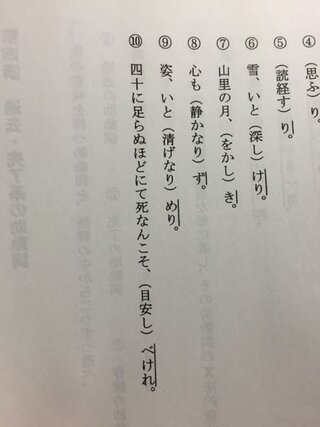 ④ （思ふ）り。
⑤ （読経す）り。
⑥ 雪、いと（深し）けり。
⑦ 山里の月、（をかし）き。
⑧ 心も（静かなり）ず。
⑨ 姿、いと（清げなり）めり。
⑩ 四十に足らぬほどにて死なんこそ、（目安し）べけれ。